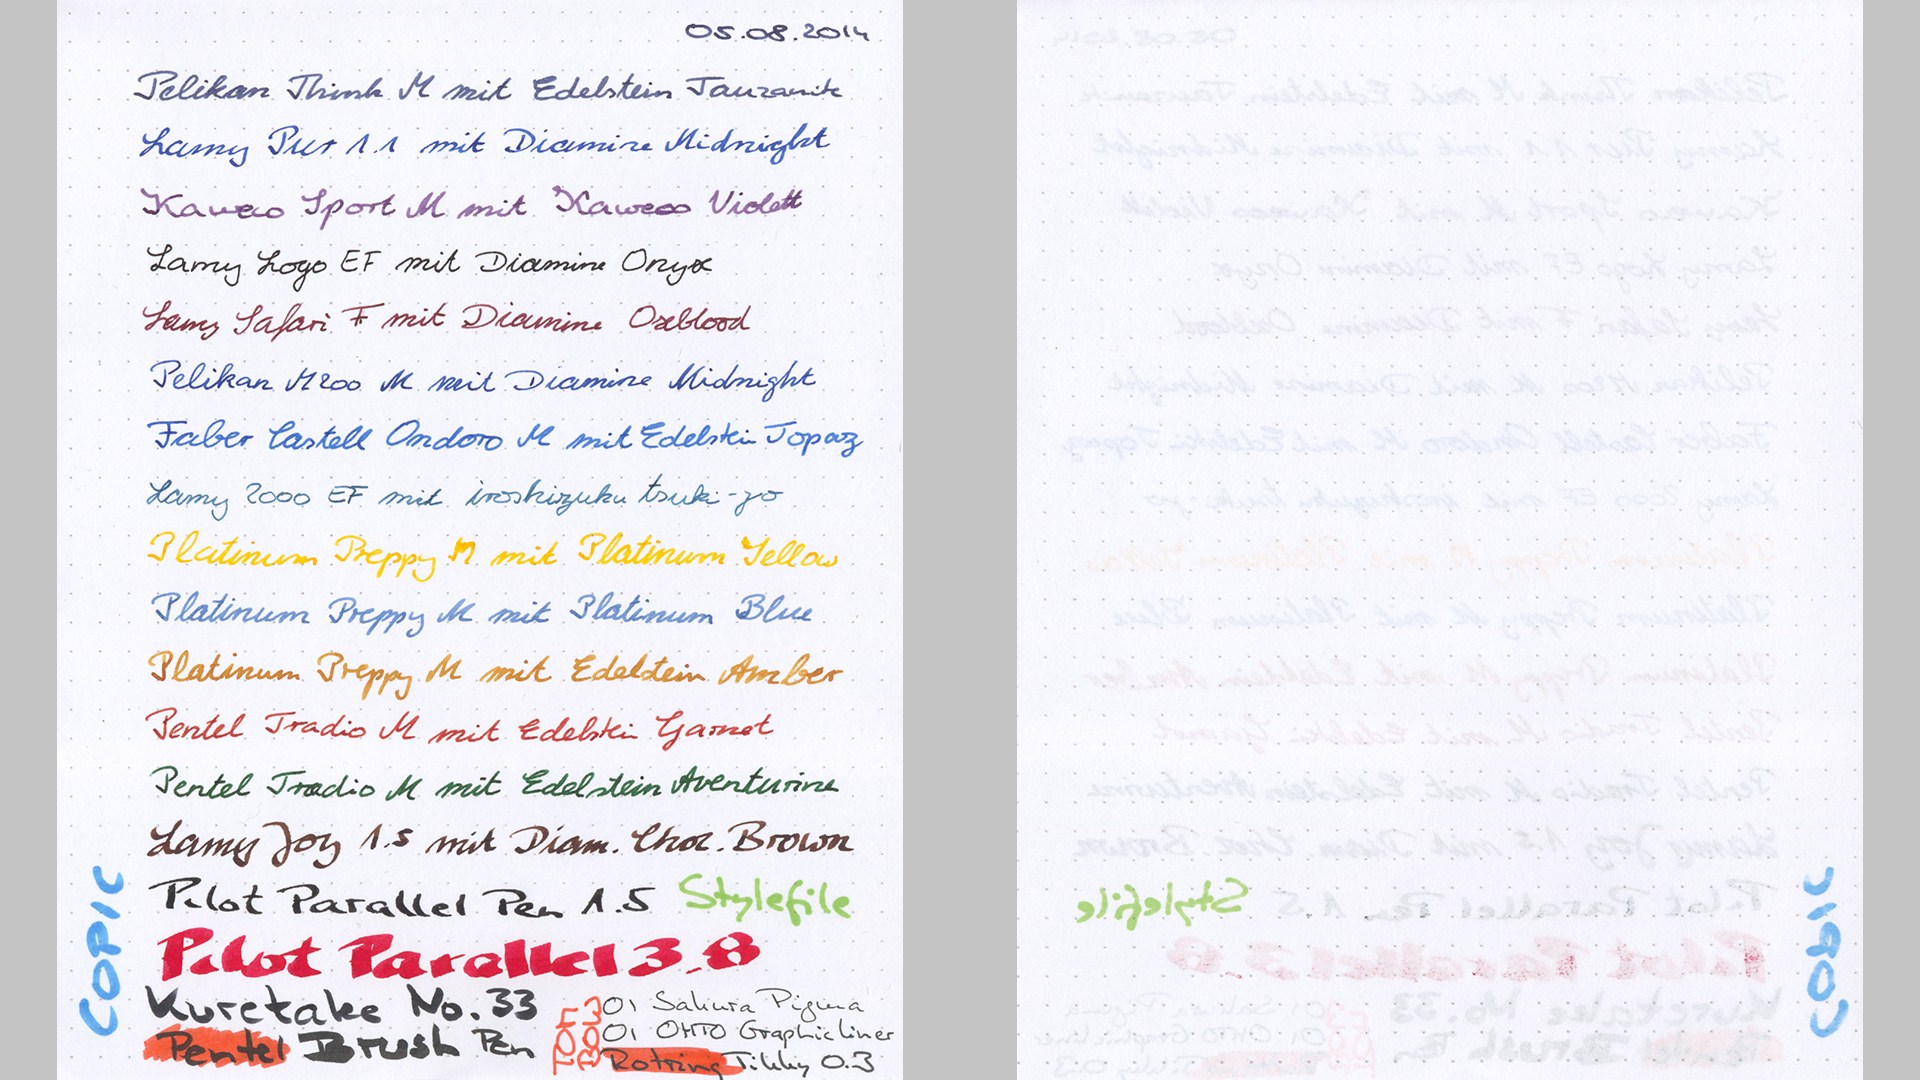 05.08.2014
Pelikan Think M mit Edelstein Tanzanite
Lamy Pur 1.1 mit Diamine Midnight
Kaweco Sport M mit Kaweco Violett
Lamy Logo EF mit Diamine Onyx
Lamy Safari F mit Diamine Oxblood
Pelikan M200 M mit Diamine Midnight
Faber Castell Ondoro M mit Edelstein Topaz
Lamy 2000 EF mit iroshizuku tsuki-yo
Platinum Preppy M mit Platinum Yellow
Platinum Preppy M mit Platinum Blue
Platinum Preppy M mit Edelstein Amber
Pentel Tradio M mit Edelstein Garnet
Pentel Tradio M mit Edelstein Aventurine
Lamy Joy 1.5 mit Diam. Choc. Brown
Pilot Parallel Pen 1.5 Stylefile
Pilot Parallel 3.8
Kuretake No. 33
Pentel Brush Pen
COPIC
TOM
BOW
01 Sakura Pigma
01 OHTO Graphicliner
Rotring Tikky 0.3